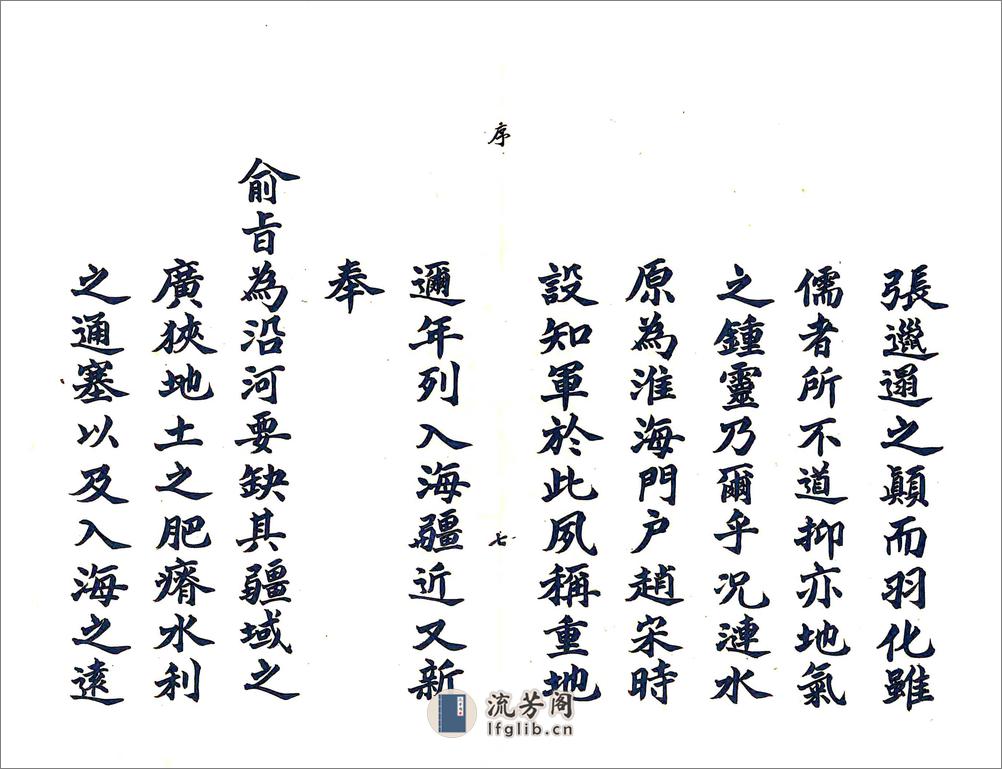 張邋遢之顛而羽化雖
儒者所不道抑亦地氣
之鍾靈乃爾乎况漣水
原為淮海門户趙宋時
設知軍於此夙稱重地
序
七
邇年列入海疆近又新
奉
俞旨為沿河要缺其疆域之
廣狹地土之肥瘠水利
之通塞以及入海之遠
流芳阁
lfglib.cn